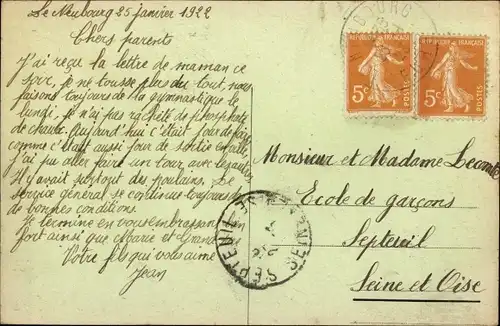 Le Neubourg 25 janvier 1922
Chers parents
J'ai reçu la lettre de maman ce
soir, je ne tousse plus du tout, nous
faisons toujours de la gymnastique le
lundi. Je n'ai pas racheté de phosphate
de chaux. Aujourd'hui c'était jour de foire
comme c'était aussi jour de sortie
j'ai pu aller faire un tour avec les autres
Il y avait surtout des poulains. Le
service général se continue toujours
de bonnes conditions.
Je termine en vous embrassant bien
fort ainsi que Marie et Grand
Votre fils qui vous aime
Jean
REPUBLIQUE FRANÇAISE
5c
POSTES
REPUBLIQUE FRANÇAISE
5c
POSTES
Monsieur et Madame Lecomte
Ecole de garçons
Septeuil
Seine et Oise
SEPTEUIL
SEINE